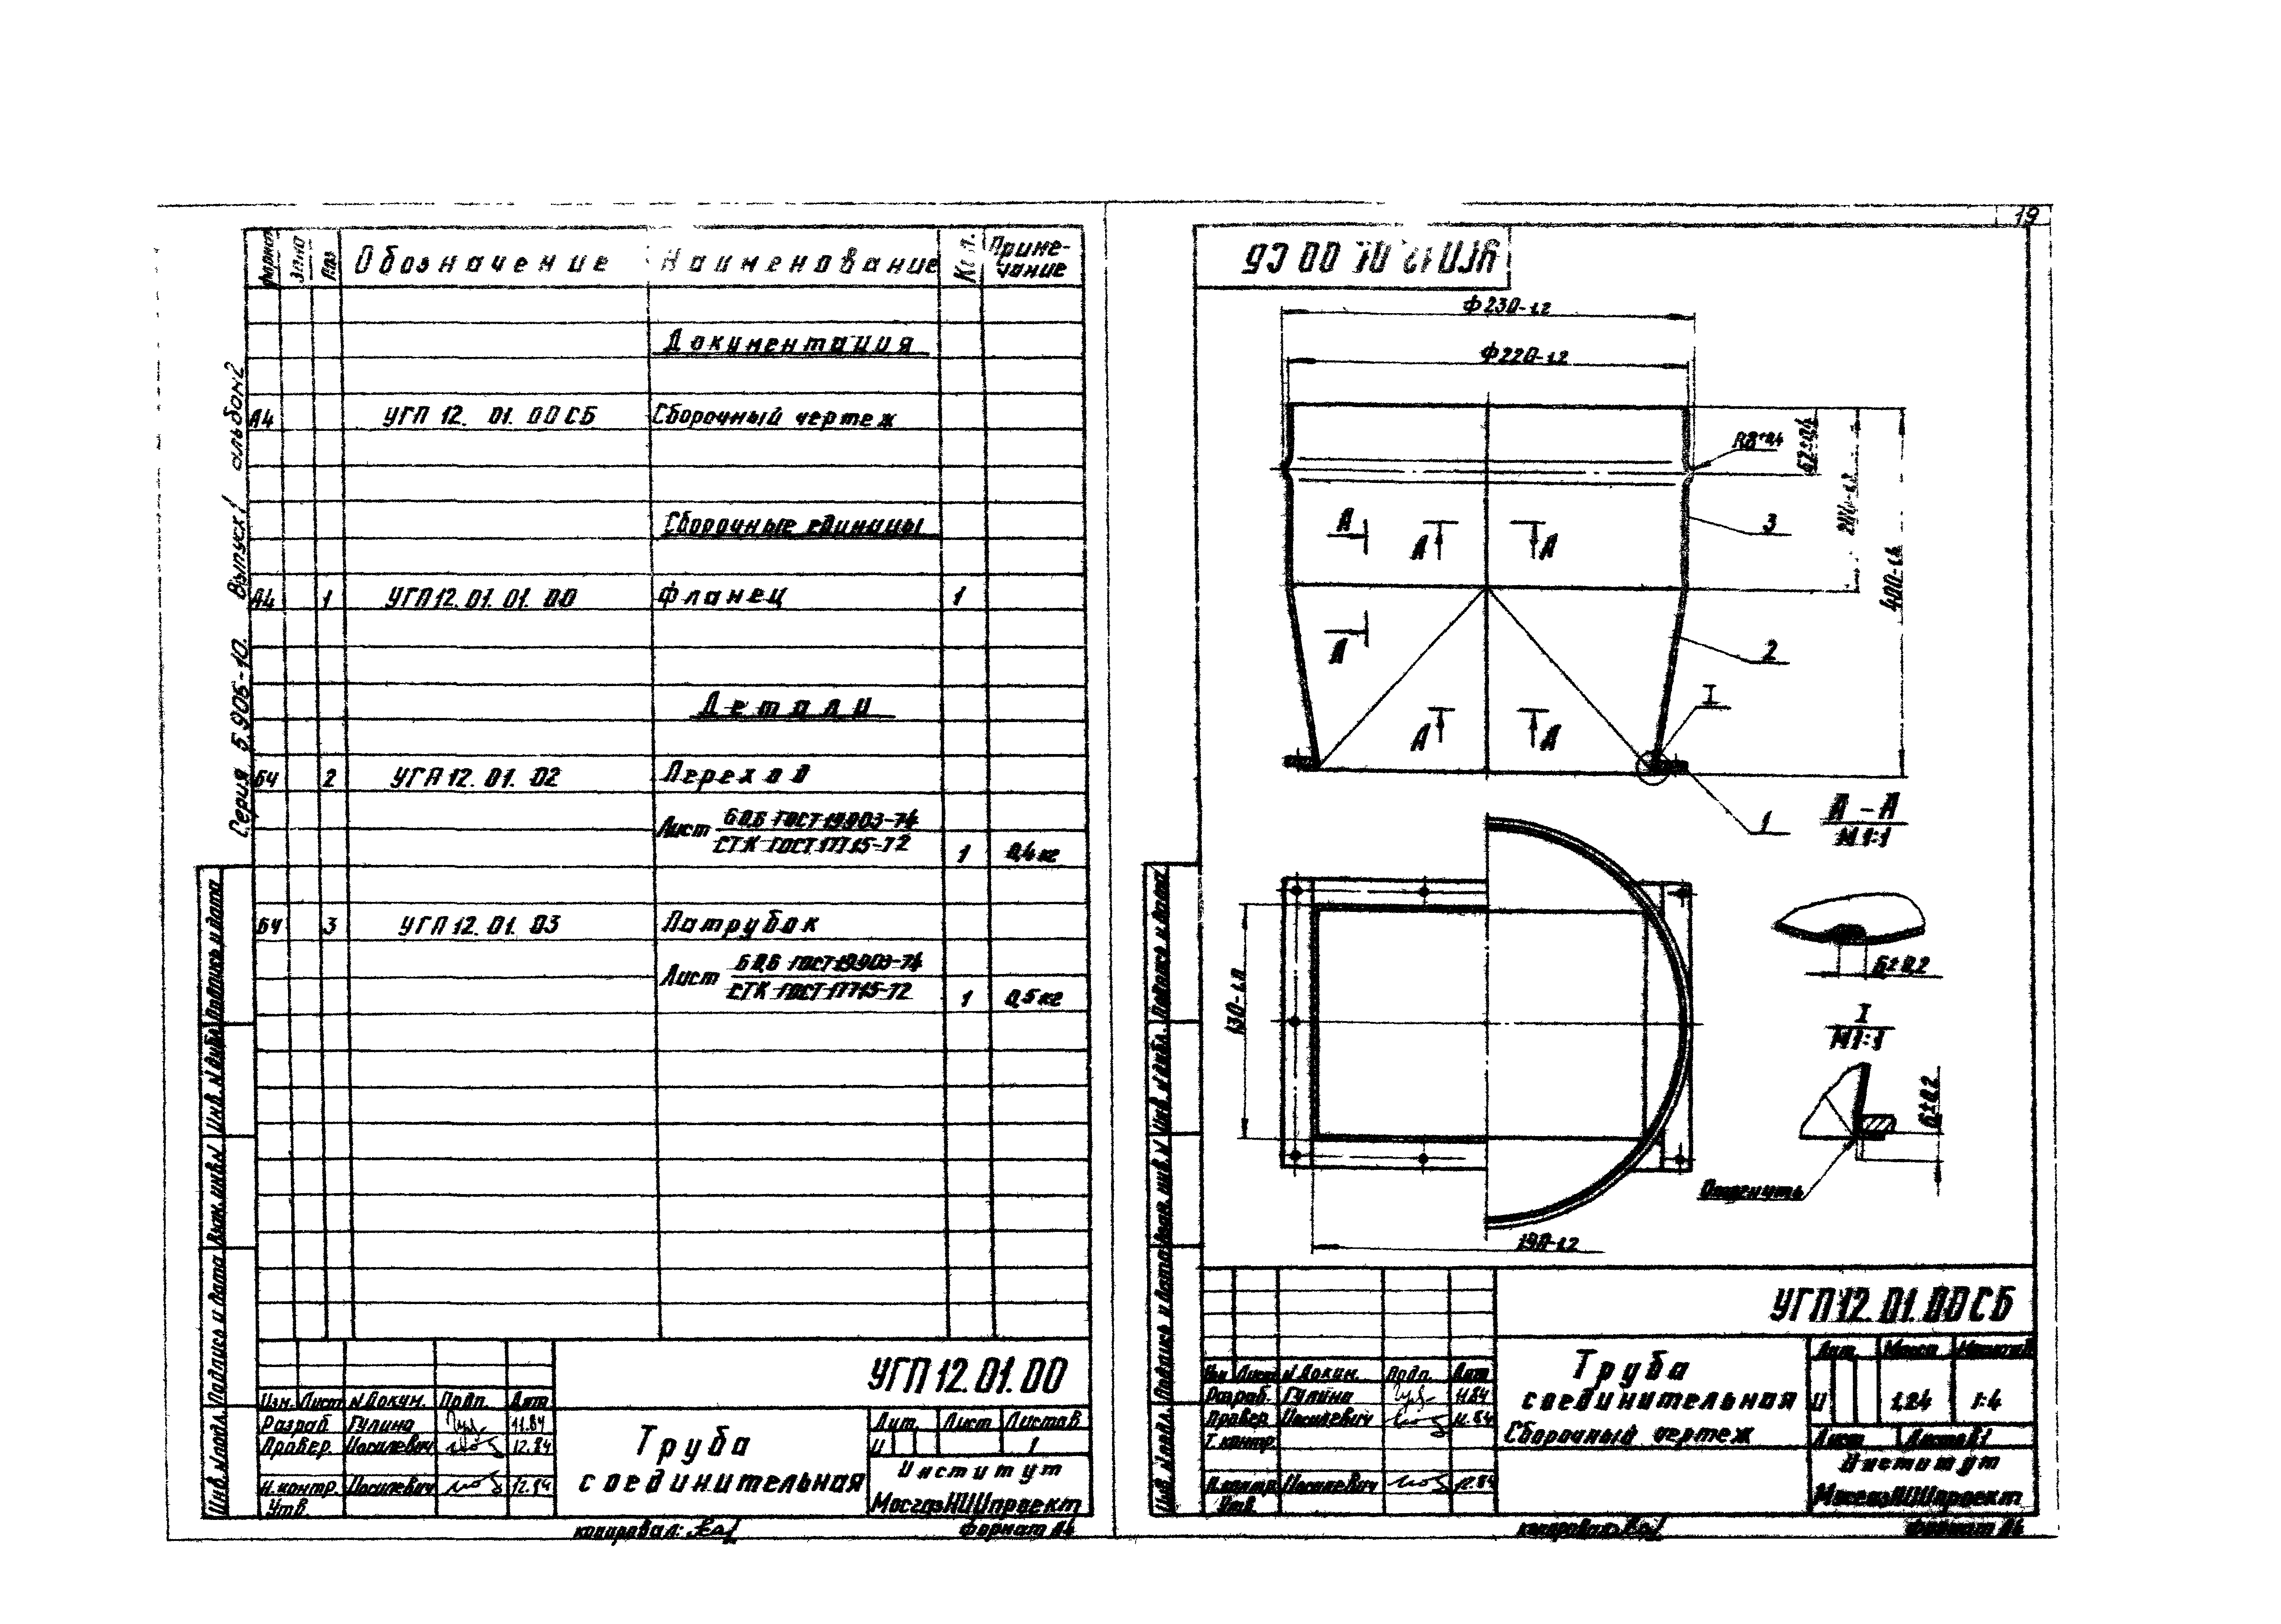 19
Формат
Зона
Поз
Обозначение
Наименование
Кол.
Приме-
чание
Документация
А4 УГП 12. 01. 00 СБ Сборочный чертеж
Сборочные единицы
А4 1 УГП 12. 01. 01. 00 Фланец 1
Детали
БЧ 2 УГП 12. 01. 02 Переход
Лист Б 0,6 ГОСТ 19903-74
СТ К ГОСТ 17715-72
1 0,4 кг
БЧ 3 УГП 12. 01. 03 Патрубок
Лист Б 0,6 ГОСТ 19903-74
СТ К ГОСТ 17715-72
1 0,5 кг
Серия 5.905-10. Выпуск 1 альбом 2
Инв. N подл. Подпись и дата Взам. инв. N Инв. N дубл. Подпись и дата
УГП 12. 01. 00
Изм. Лист N Докум. Подп. Дат
Разраб. Гулина 11.84
Провер. Иосилевич 12.84
Н. контр. Иосилевич 12.84
Утв.
Труба
соединительная
Лит. Лист Листов
И 1
Институт
МосгазНИИпроект
копировал:
формат А4
УГП 12. 01. 00 СБ
ф 230-1.2
ф 220-1.2
R8±0,4
62±0,4
400-1.6
А
А
А
А
А
А
3
2
I
1
А - А
М 1:1
6±0,2
I
М 1:1
6±0,2
Отогнуть
130-1.0
190-1.2
Инв. N подл. Подпись и дата Взам. инв. N Инв. N дубл. Подпись и дата
УГП 12. 01. 00 СБ
Изм Лист N Докум. Подп. Дат
Разраб. Гулина 11.84
Провер. Иосилевич 12.84
Т. контр.
Н. контр. Иосилевич 12.84
Утв.
Труба
соединительная
Сборочный чертеж
Лит. Масса Масштаб
И 1.24 1:4
Лист Листов 1
Институт
МосгазНИИпроект
копировал:
формат А4